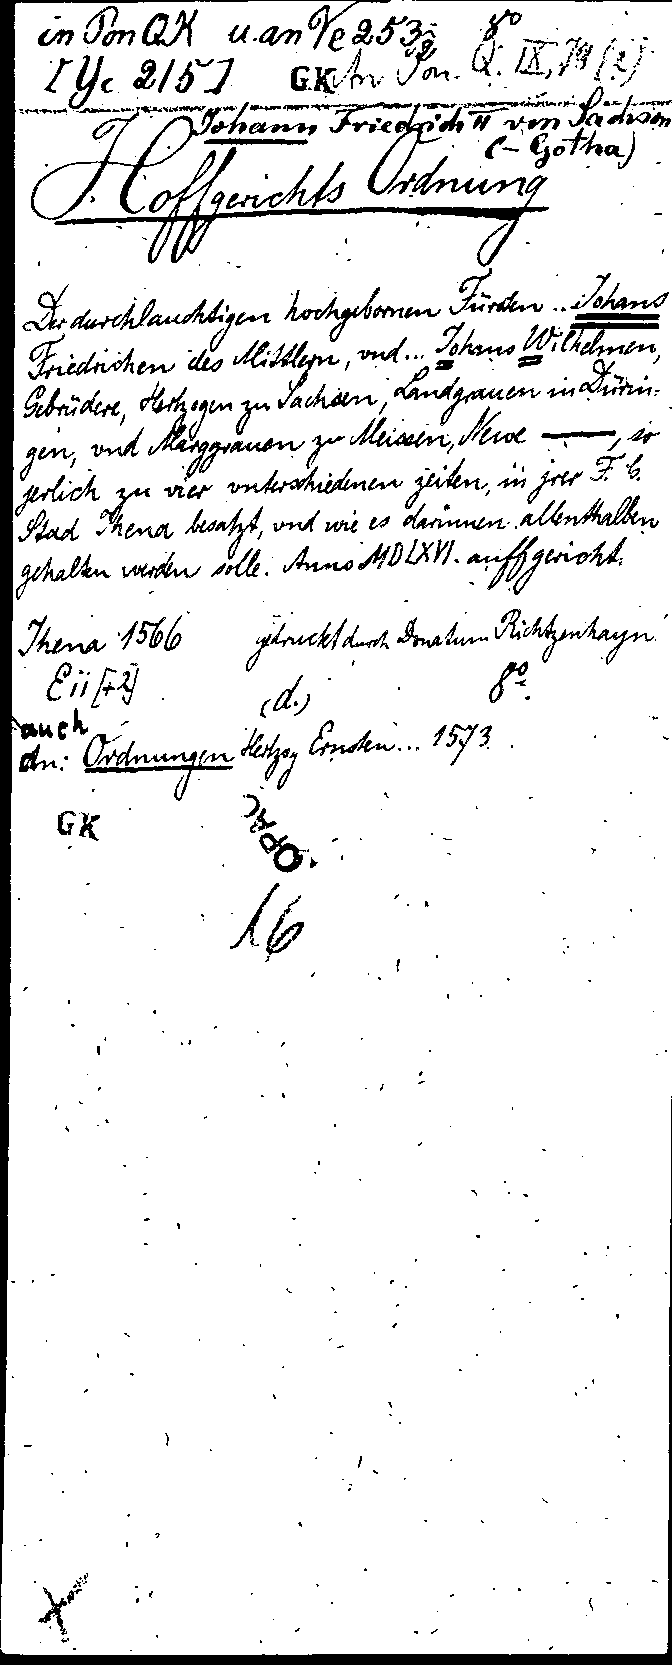 in Pon QK u. an Ve 2532 8o
[Yc 215] GK An Pon. Q. IX, 79 (2)
Johann Friedrich II von Sachsen
(- Gotha)
Hoffgerichts Ordnung
Der durchlauchtigen hochgebornen Fürsten .. Johans
Friedrichen des Mittlern, vnd ... Johans Wilhelmen,
Gebrüdere, Hertzogen zu Sachsen, Landgrauen in Dürin-
gen, vnd Marggrauen zu Meissen, Newe ———, so
jerlich zu vier vnterschiedenen zeiten, in jrer F. G.
Stad Jhena besatzt, vnd wie es darinnen allenthalben
gehalten werden solle. Anno MDLXVI. auffgericht.
Jhena 1566 gedruckt durch Donatum Richtzenhayn.
E ii [+2] (d.) 8o.
auch
dn: Ordnungen Hertzog Ernsten ... 1573.
GK
OPAC
16